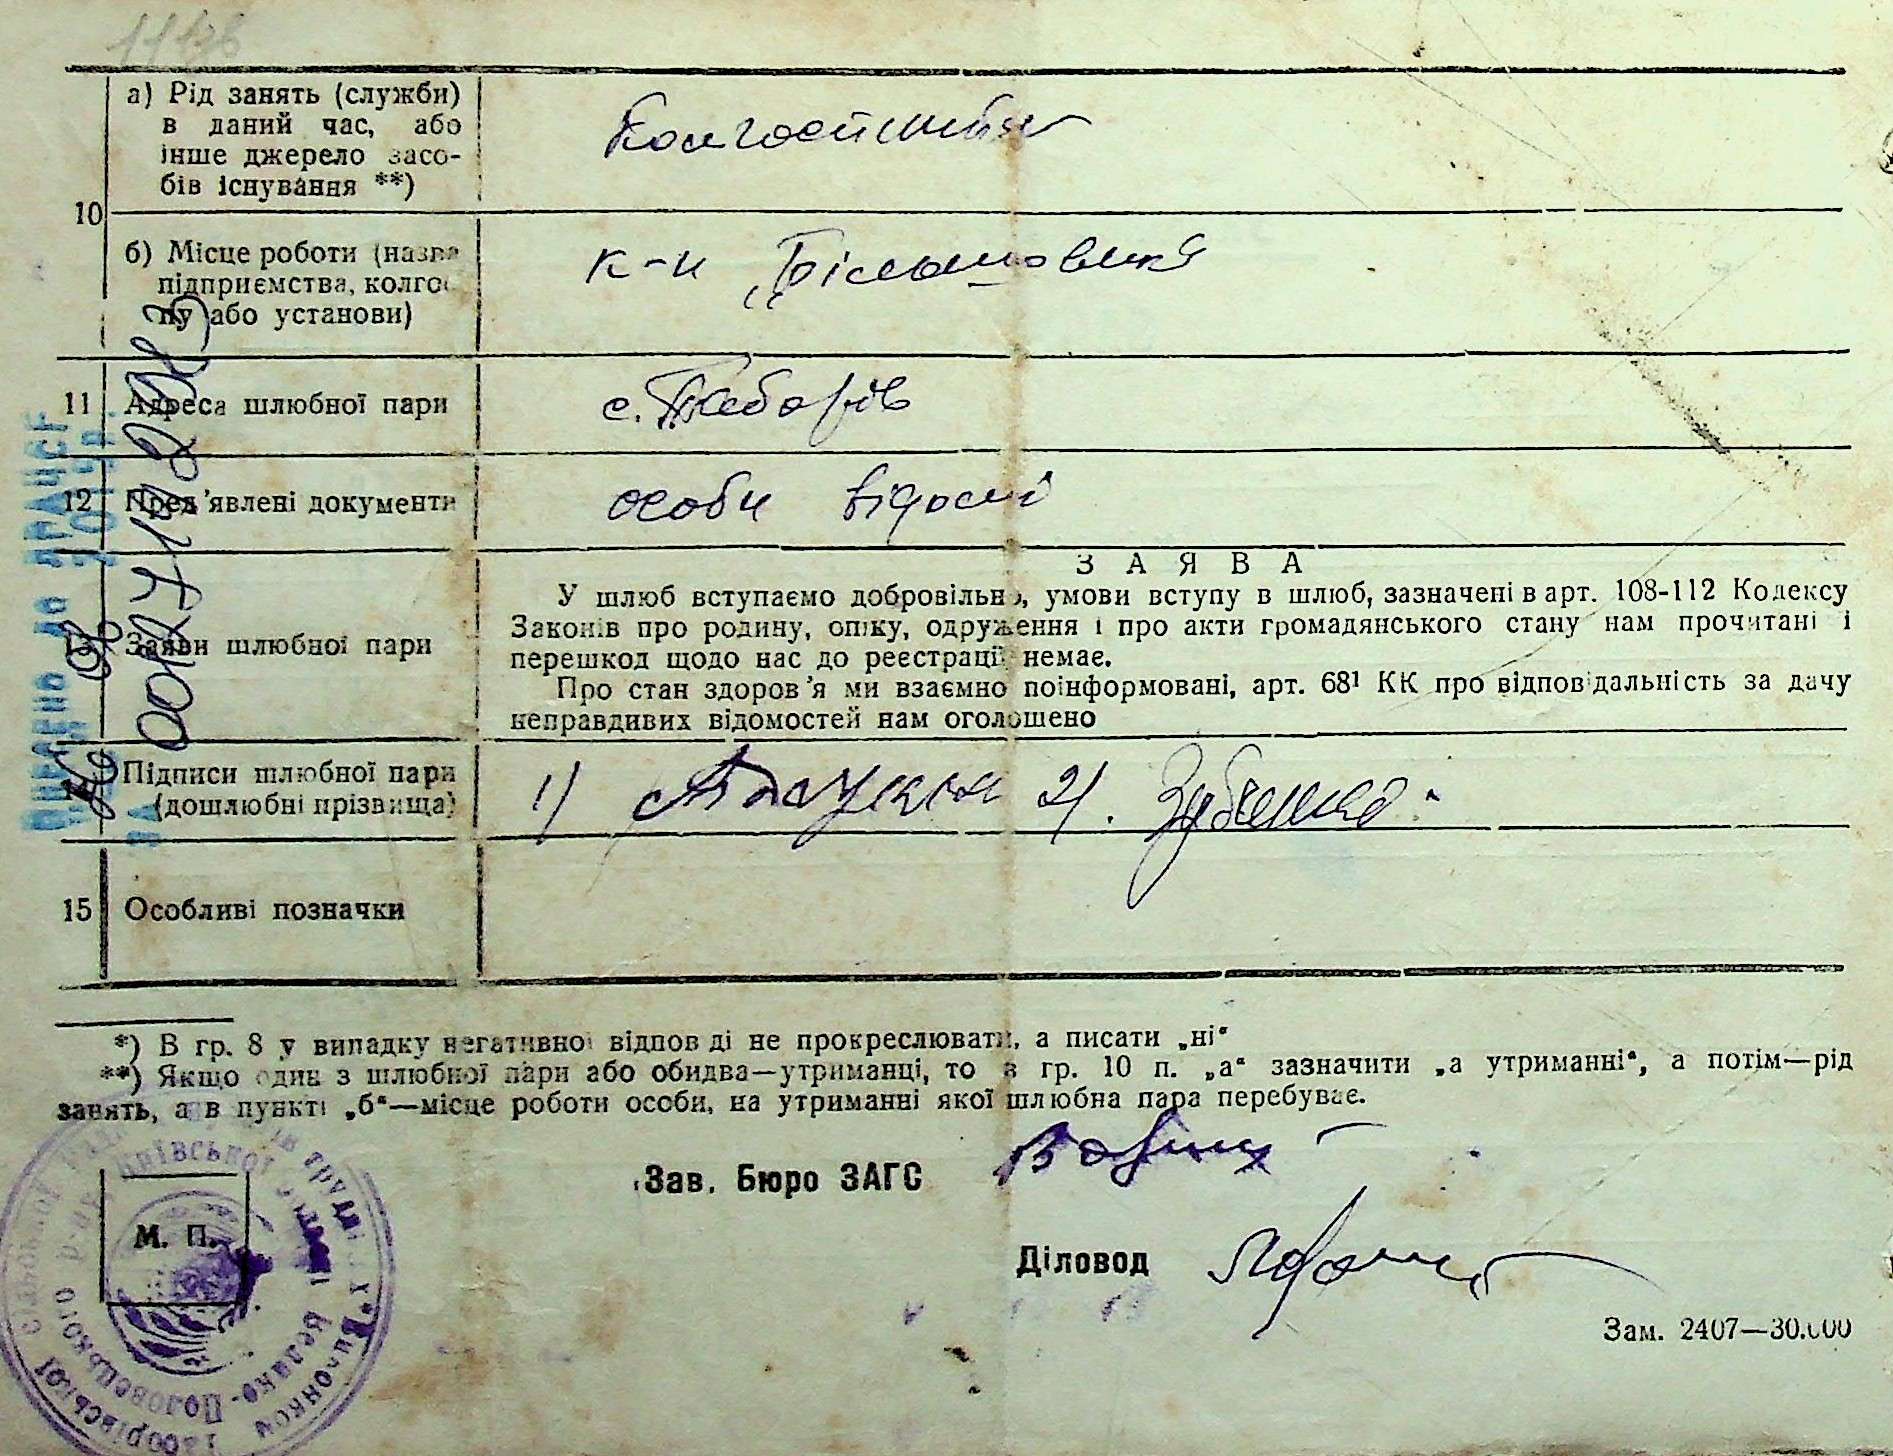 а) Рід занять (служби)
в даний час, або
інше джерело засо-
бів існування **)
Колгоспники
10
б) Місце роботи (назва
підприємства, колго
пу або установи)
к-п „Більшовик"
11 Адреса шлюбної пари
с. Таборів
12 Пред'явлені документи
особи відомі
З А Я В А
У шлюб вступаємо добровільно, умови вступу в шлюб, зазначені в арт. 108-112 Кодексу
Законів про родину, опіку, одруження і про акти громадянського стану нам прочитані і
перешкод щодо нас до реєстрації немає.
13 Заяви шлюбної пари
Про стан здоров'я ми взаємно поінформовані, арт. 68¹ КК про відповідальність за дачу
неправдивих відомостей нам оголошено
14 Підписи шлюбної пари
(дошлюбні прізвища)
1) 2). Зубенко
15 Особливі позначки
*) В гр. 8 у випадку негативної відповіді не прокреслювати, а писати „ні"
**) Якщо один з шлюбної пари або обидва—утриманці, то в гр. 10 п. „а" зазначити „а утриманні", а потім—рід
занять, а в пункті „б"—місце роботи особи, на утриманні якої шлюбна пара перебуває.
Зав. Бюро ЗАГС
М. П.
Діловод
Зам. 2407—30.000